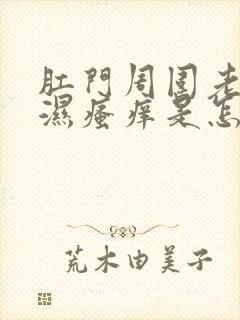 肛門周围老
濕瘙痒是怎
荒木由美子